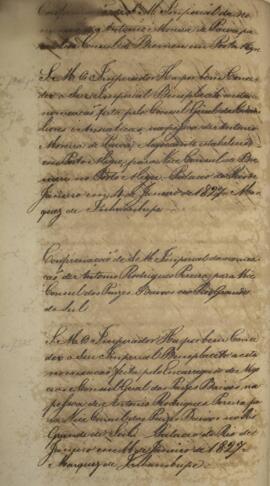 Confirmação de S. M. Imperial da no-
Antonio Moreira de Paiva pa-
Consul de Bremen em Porto Alegre
S. M. O Imperador Ha por bem Conce-
der o Seu Imperial Beneplacito a esta
nomeação feita pelo Consul Geral
na pessoa de Antonio
Moreira de Paiva, Negociante estabelecido
em Porto Alegre, para Vice Consul de Bre-
men no Porto Alegre. Palacio do Rio de
Janeiro em 4 de Janeiro de 1827. Mar-
quez de Inhambupe.
Confirmação de S. M. Imperial da nomea-
ção de Antonio Rodrigues Pereira para Vice
Consul dos Paizes Baixos no Rio Grande
do Sul
S. M. O Imperador Ha por bem Conce-
der o Seu Imperial Beneplacito a esta
nomeação feita pelo Encarregado de Nego-
cios e Consul Geral dos Paizes Baixos na
pessoa de Antonio Rodrigues Pereira pa-
ra Vice Consul dos Paizes Baixos no Rio
Grande do Sul. Palacio do Rio de
Janeiro em de Janeiro de 1827.
Marquez de Inhambupe.